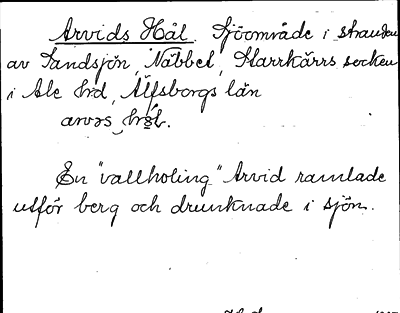 Arvids Hål. Sjöområde i stranden
av Sandsjön, Näbbet, Starrkärrs socken
i Ale hd, Älfsborgs län
En "vallholing" Arvid ramlade
utför berg och drunknade i sjön.